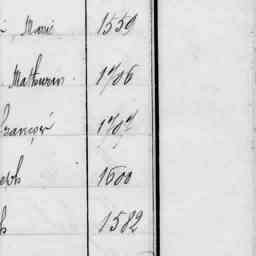 Marie 1559
Mathurin 1706
François 1707
eph 1600
h 1582